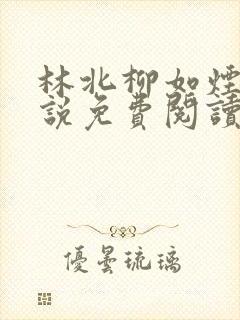 林北柳如煙
說免費閱讀
優曇琉璃